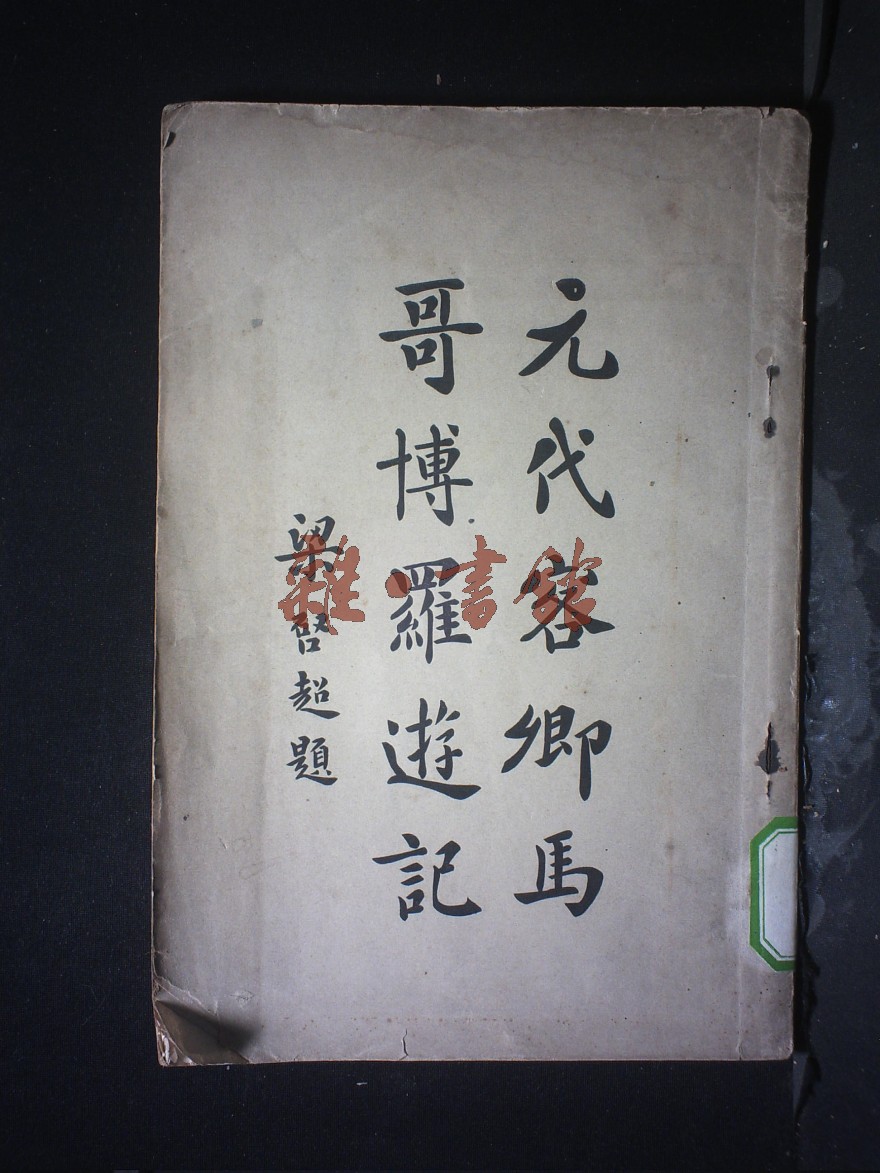 元代客卿馬
哥博羅遊記
梁啓超題
雜·書館